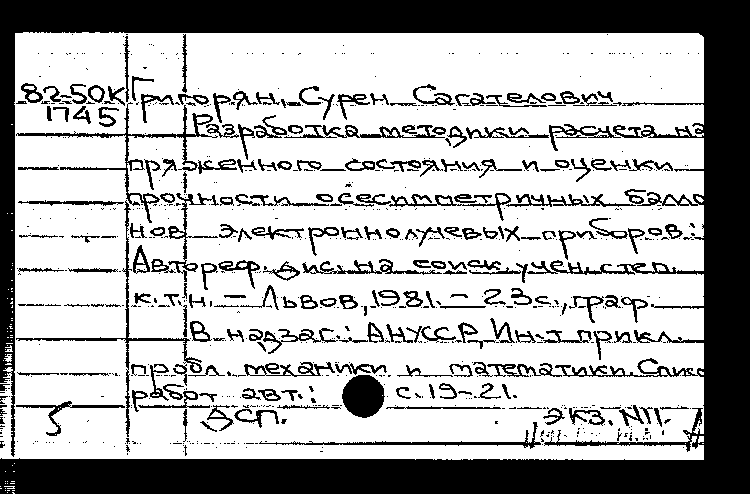 82-50К Григорян, Сурен Сагателович
1745 Разработка методики расчета на
пряженного состояния и оценки
прочности осесимметричных балло
нов электроннолучевых приборов.:
Автореф. дис. на соиск. учен. степ.
к.т.н. – Львов, 1981. – 23с., граф.
В надзаг.: АН УССР, Ин-т прикл.
пробл. механики и математики. Списо
работ авт.: с. 19-21.
5 ДСП. экз. N11.